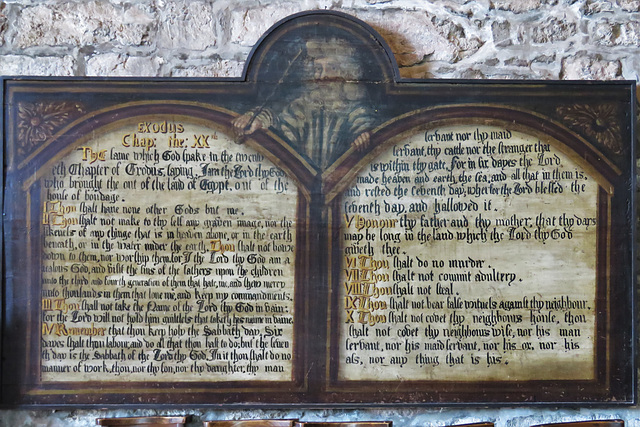 Exodus
Chap: the; XX th
The same which God spake in the twenti
eth Chapter of Exodus, saying, I am the Lord thy God
who brought thee out of the land of Egypt, out of the
house of bondage.
I Thou shalt have none other Gods but me.
II Thou shalt not make to thy self any graven image, nor the
likeness of any thing that is in heaven above, or in the earth
beneath, or in the water under the earth, Thou shalt not bowe
down to them, nor worship them, for I thy Lord thy God am a
jealous God, and visit the sins of the fathers upon the children
unto the third and fourth generation of them that hate me, and shew mercy
unto thousands in them that love me, and keep my commandments.
III Thou shalt not take the Name of the Lord thy God in vain:
for the Lord will not hold him guiltless that taketh his name in vaine.
IV Remember that thou keep holy the Sabbath day, Six
dayes shalt thou labour, and do all that thou hast to do; but the seven
th day is the Sabbath of the Lord thy God. In it thou shalt do no
manner of work, thou, nor thy son, nor thy daughter, thy man
servant nor thy maid
servant, thy cattle nor the stranger that
is within thy gate, For in six dayes the Lord
made heaven and earth, the sea, and all that in them is.
and rested the seventh day, wherfor the Lord blessed the
seventh day, and hallowed it.
V Honour thy father and thy mother, that thy days
may be long in the land which the Lord thy God
giveth thee.
VI Thou shalt do no murder.
VII Thou shalt not commit adultery.
VIII Thou shalt not steal.
IX Thou shalt not bear false witness against thy neighbour.
X Thou shalt not covet thy neighbours house, thou
shalt not covet thy neighbours wife, nor his man
servant, nor his maid servant, nor his ox, nor his
ass, nor any thing that is his.